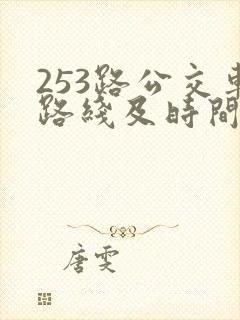 253路公交車
路綫及時間
唐雯